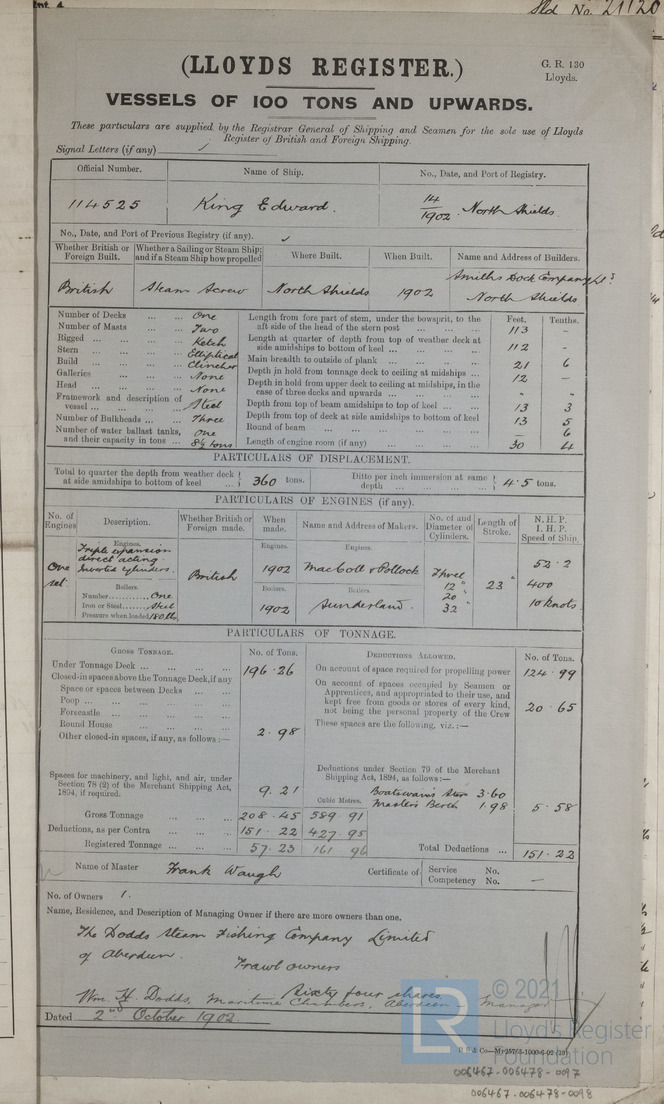 Sld No. 21120
(LLOYDS REGISTER.)
G. R. 130
Lloyds.
VESSELS OF 100 TONS AND UPWARDS.
These particulars are supplied by the Registrar General of Shipping and Seamen for the sole use of Lloyds
Register of British and Foreign Shipping.
Signal Letters (if any)
Official Number. Name of Ship. No., Date, and Port of Registry.
114525 King Edward. 14/1902 North Shields
No., Date, and Port of Previous Registry (if any).
Whether British or Foreign Built. Whether a Sailing or Steam Ship; and if a Steam Ship how propelled Where Built. When Built. Name and Address of Builders.
British Steam Screw North Shields 1902 Smiths Dock Company Ld North Shields
Number of Decks ... ... One
Number of Masts ... ... Two
Rigged ... ... ... Ketch
Stern ... ... ... Elliptical
Build ... ... ... Clincher
Galleries ... ... ... None
Head ... ... ... None
Framework and description of vessel ... ... ... Steel
Number of Bulkheads ... ... Three
Number of water ballast tanks, and their capacity in tons ... One 8½ tons
Feet. Tenths.
Length from fore part of stem, under the bowsprit, to the aft side of the head of the stern post ... 113 -
Length at quarter of depth from top of weather deck at side amidships to bottom of keel ... 112 -
Main breadth to outside of plank ... 21 6
Depth in hold from tonnage deck to ceiling at midships ... 12 -
Depth in hold from upper deck to ceiling at midships, in the case of three decks and upwards ... " "
Depth from top of beam amidships to top of keel ... 13 3
Depth from top of deck at side amidships to bottom of keel 13 5
Round of beam ... - 6
Length of engine room (if any) ... 30 4
PARTICULARS OF DISPLACEMENT.
Total to quarter the depth from weather deck at side amidships to bottom of keel ... 360 tons. Ditto per inch immersion at same depth ... 4.5 tons.
PARTICULARS OF ENGINES (if any).
No. of Engines Description. Whether British or Foreign made. When made. Name and Address of Makers. No. of and Diameter of Cylinders. Length of Stroke. N. H. P. I. H. P. Speed of Ship.
Engines. Engines. Engines.
One set Triple expansion direct acting Inverted cylinders. British 1902 MacColl & Pollock Three 12" 20" 32" 23" 52.2
400
10 knots
Boilers. Boilers. Boilers.
Number ... One
Iron or Steel ... Steel 1902 Sunderland.
Pressure when loaded 180 lbs
PARTICULARS OF TONNAGE.
GROSS TONNAGE. No. of Tons. DEDUCTIONS ALLOWED. No. of Tons.
Under Tonnage Deck ... 196.26
Closed-in spaces above the Tonnage Deck, if any
Space or spaces between Decks ...
Poop ...
Forecastle ...
Round House ...
2.98
Other closed-in spaces, if any, as follows:—
Spaces for machinery, and light, and air, under Section 78 (2) of the Merchant Shipping Act, 1894, if required. 9.21
On account of space required for propelling power 124.99
On account of spaces occupied by Seamen or Apprentices, and appropriated to their use, and kept free from goods or stores of every kind, not being the personal property of the Crew 20.65
These spaces are the following, viz.:—
Deductions under Section 79 of the Merchant Shipping Act, 1894, as follows:—
Boatswain's Store 3.60
Master's Berth 1.98 5.58
Cubic Metres.
Gross Tonnage ... 208.45 589 91
Deductions, as per Contra ... 151.22 427.95
Registered Tonnage ... 57.23 161 96
Total Deductions ... 151.22
Name of Master Frank Waugh
Certificate of Service No.
Competency No. —
No. of Owners 1.
Name, Residence, and Description of Managing Owner if there are more owners than one.
The Dodds Steam Fishing Company Limited
of Aberdeen.
Trawl owners
Sixty four shares
Wm. H. Dodds, Maritime Chambers, Aberdeen - Manager
Dated 2nd October 1902.
© 2021
LR Lloyd's Register
Foundation
006467-006478-0097
006467-006478-0098